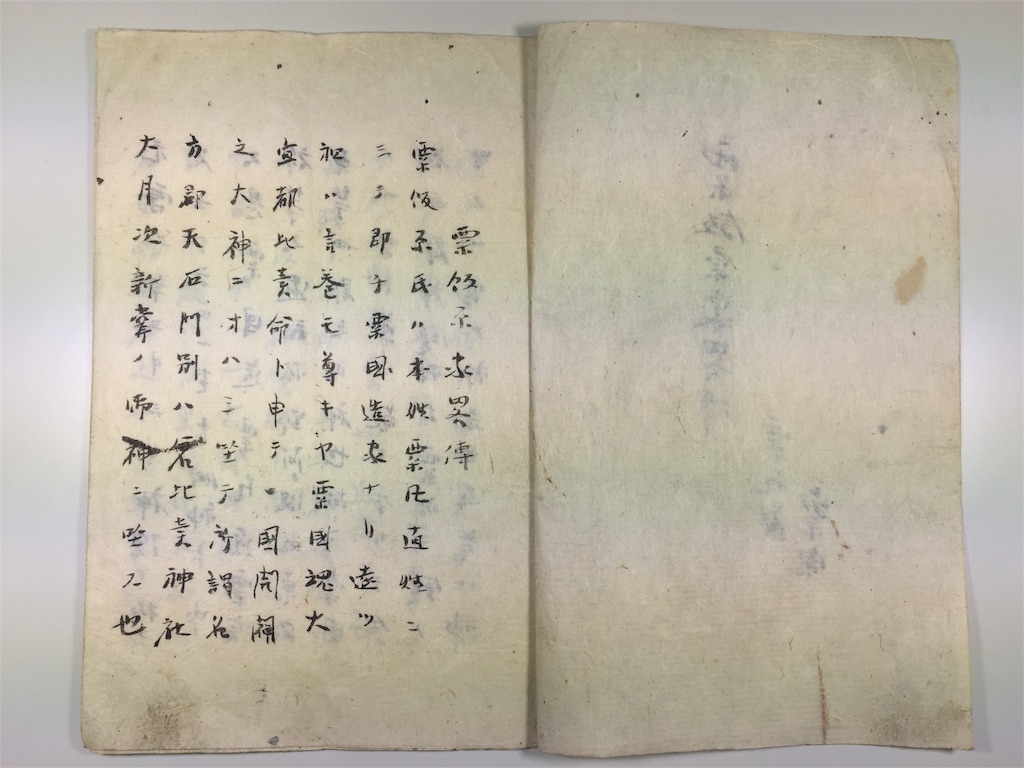 粟飯原家畧傳
粟飯原氏ハ本姓粟凡直姓ニ
シテ即チ粟國造家ナリ遠ツ
祖ハ言巻モ尊キヤ粟國魂大
宜都比賣命ト申テ、國開闢
之大神ニオハシ坐テ所謂名
方郡天石門別八倉比賣神社
大月次新嘗ノ御神ニ坐ス也